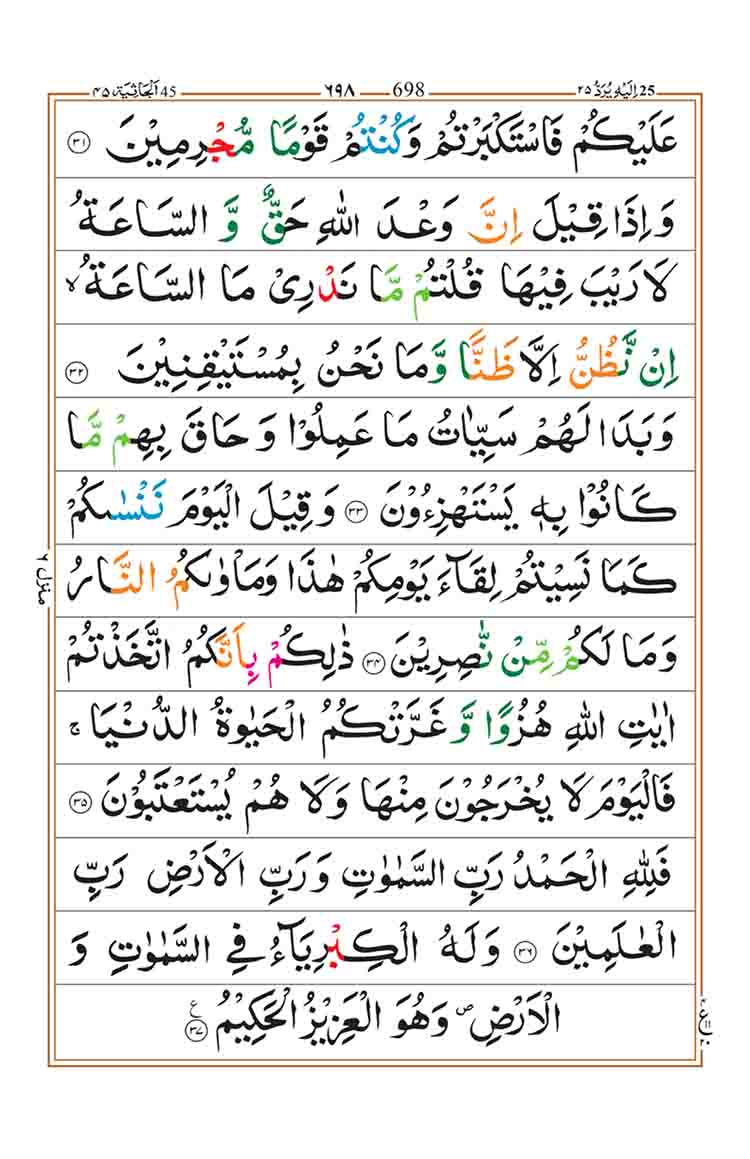 اِلَیْهِ یُرَدُّ ٢٥ 25 698 ٦٩٨ اَلْجَاثِیَة ٤٥ 45
عَلَیْكُمْ فَاسْتَكْبَرْتُمْ وَكُنْتُمْ قَوْمًا مُّجْرِمِیْنَ ٣١
وَ اِذَا قِیْلَ اِنَّ وَعْدَ اللّٰهِ حَقٌّ وَّ السَّاعَةُ
لَا رَیْبَ فِیْهَا قُلْتُمْ مَّا نَدْرِیْ مَا السَّاعَةُ ۙ
اِنْ نَّظُنُّ اِلَّا ظَنًّا وَّ مَا نَحْنُ بِمُسْتَیْقِنِیْنَ ٣٢
وَ بَدَا لَهُمْ سَیِّاٰتُ مَا عَمِلُوْا وَ حَاقَ بِهِمْ مَّا
كَانُوْا بِهٖ یَسْتَهْزِءُوْنَ ٣٣ وَ قِیْلَ الْیَوْمَ نَنْسٰىكُمْ
كَمَا نَسِیْتُمْ لِقَآءَ یَوْمِكُمْ هٰذَا وَ مَاْوٰىكُمُ النَّارُ
وَ مَا لَكُمْ مِّنْ نّٰصِرِیْنَ ٣٤ ذٰلِكُمْ بِاَنَّكُمُ اتَّخَذْتُمْ
اٰیٰتِ اللّٰهِ هُزُوًا وَّ غَرَّتْكُمُ الْحَیٰوةُ الدُّنْیَا ۚ
فَالْیَوْمَ لَا یُخْرَجُوْنَ مِنْهَا وَ لَا هُمْ یُسْتَعْتَبُوْنَ ٣٥
فَلِلّٰهِ الْحَمْدُ رَبِّ السَّمٰوٰتِ وَ رَبِّ الْاَرْضِ رَبِّ
الْعٰلَمِیْنَ ٣٦ وَ لَهُ الْكِبْرِیَآءُ فِی السَّمٰوٰتِ وَ
الْاَرْضِ ۪ وَ هُوَ الْعَزِیْزُ الْحَكِیْمُ ٣٧ ع
منزل ٦